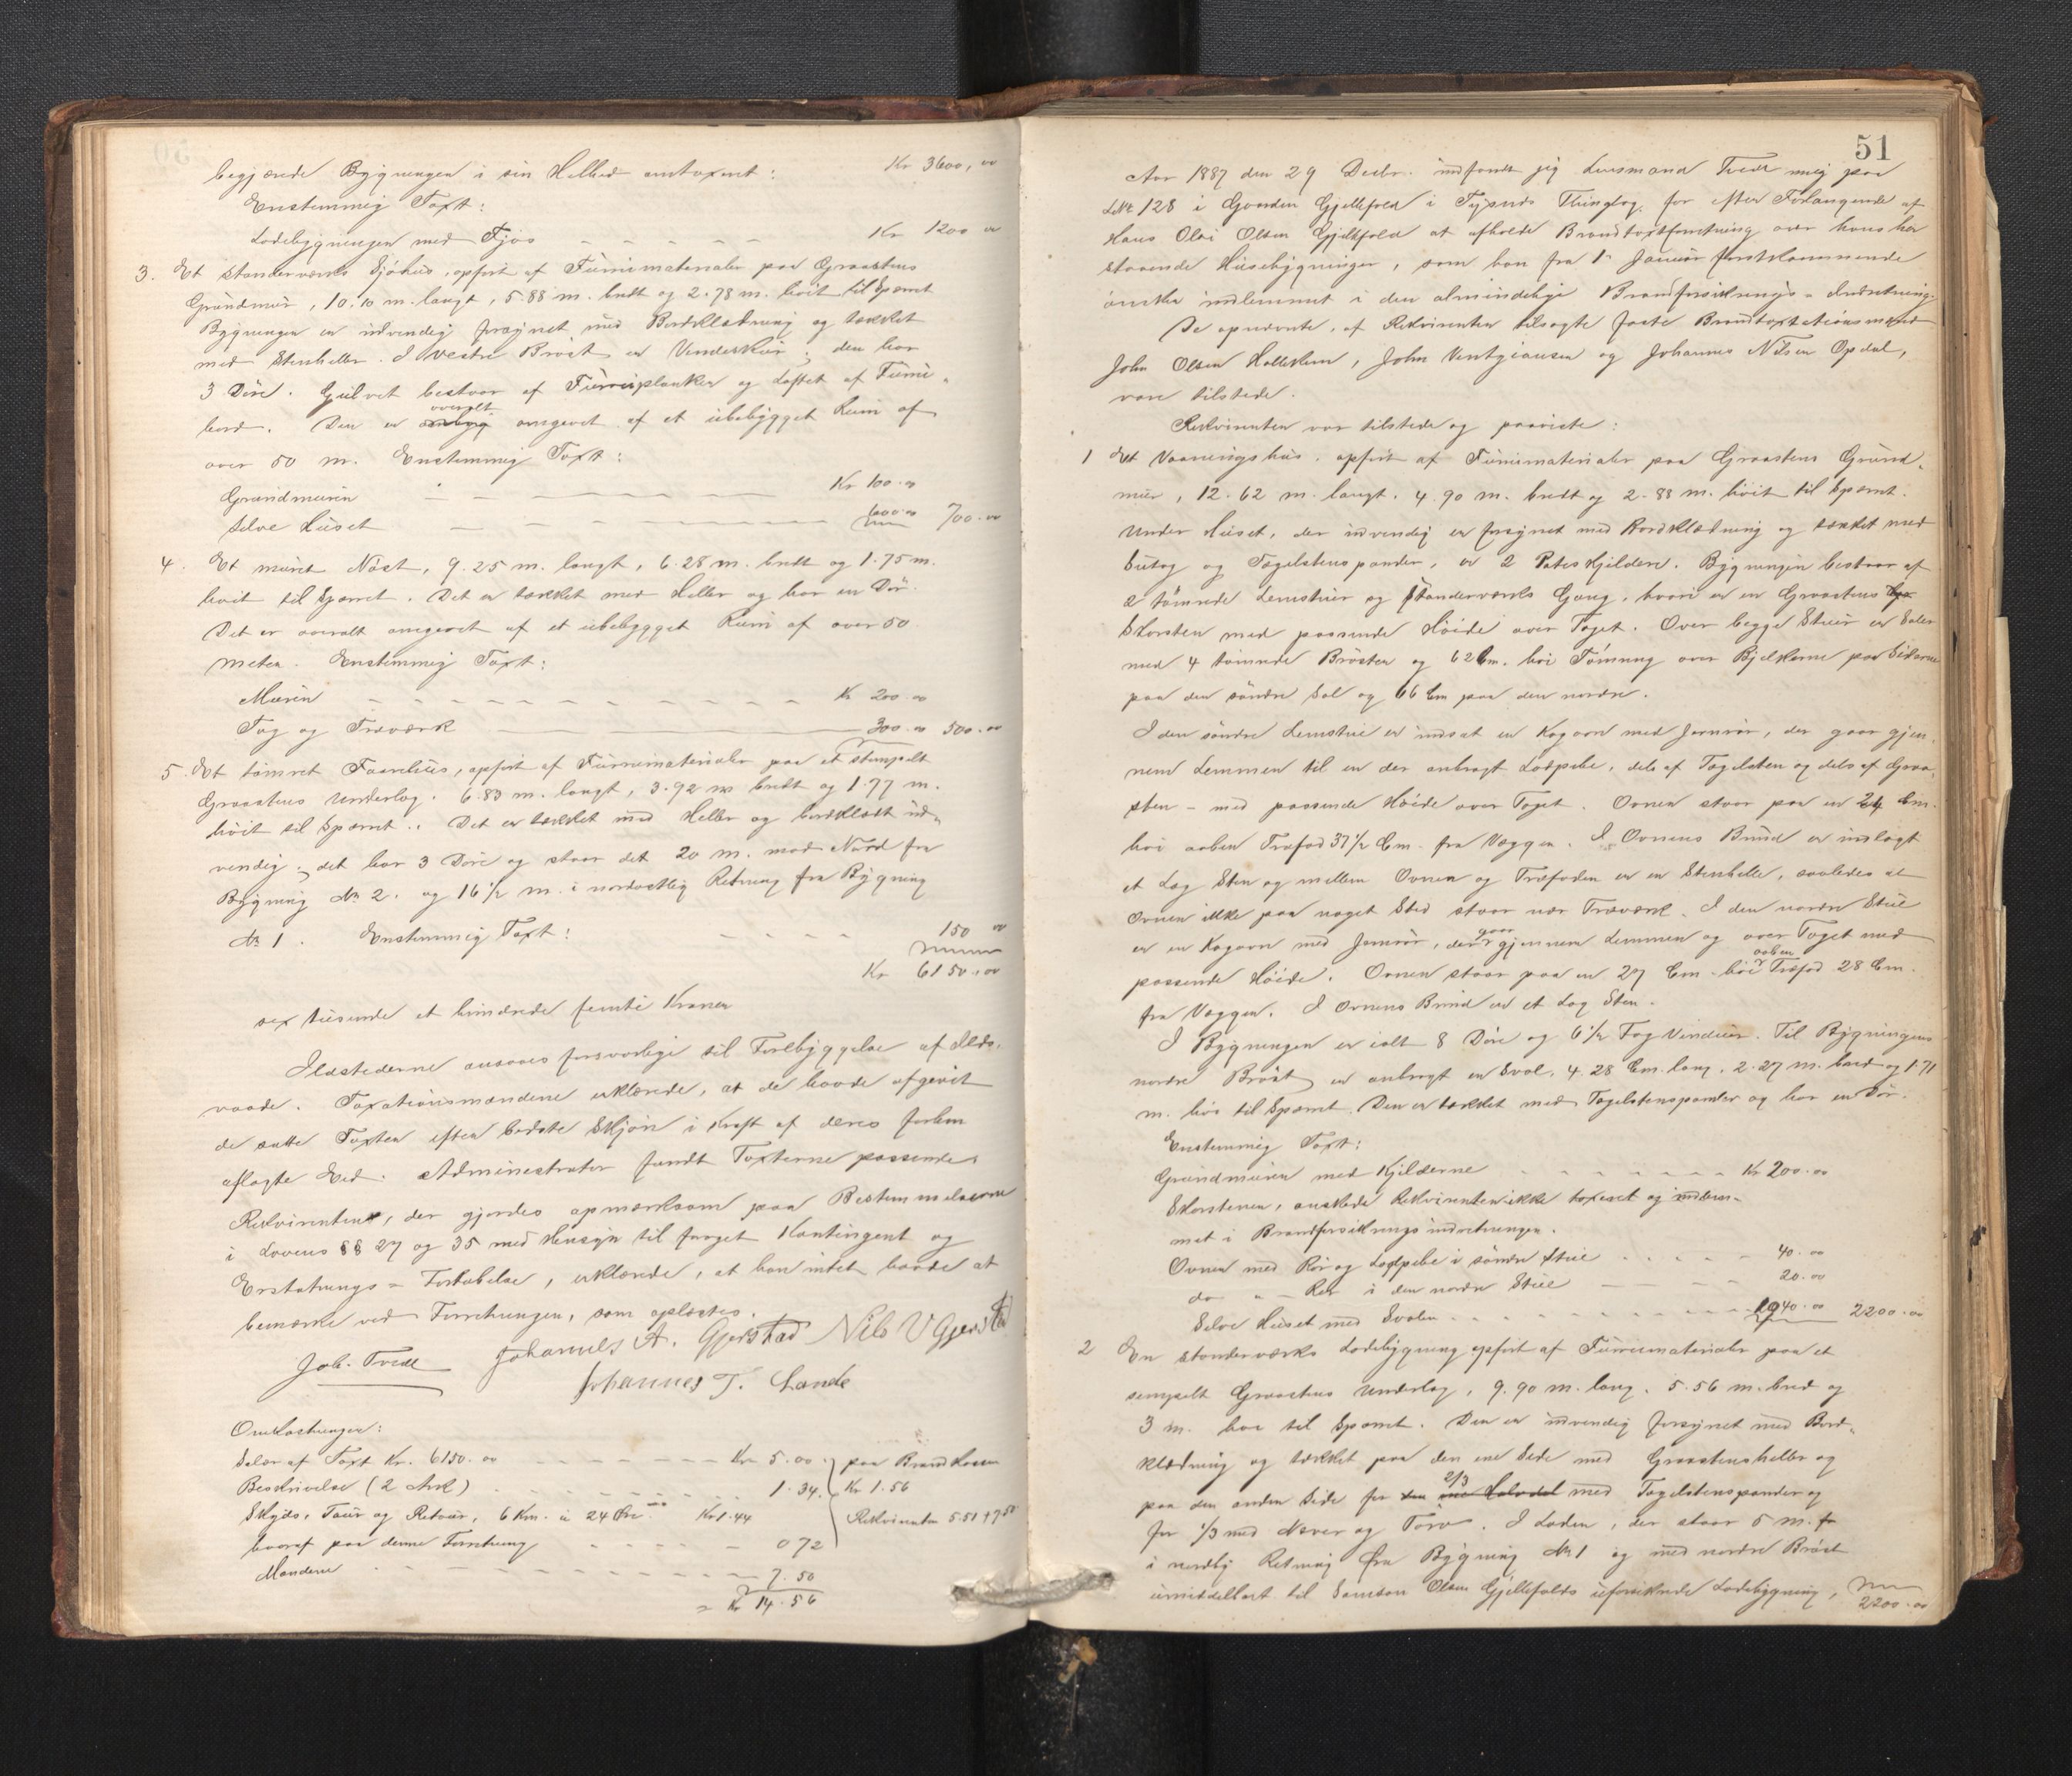 begjærede Bygningen i sin Helhed omtaxeret: Kr 3600,00
Enstemmig Taxt:
Ladebygningen med Fjøs Kr 1200 00
3. Et standerværks Sjøhus, opført af Furrumaterialer paa Graastens
Grundmur, 10.10 m. langt, 5.88 m. bredt og 2.78 m. høit til Sparret
Bygningen er udvendig forsynet med Bordklædning og tækket
med Stenheller. I vestre Brøst er Vinderskur; den har
3 Døre. Gulvet bestaar af Furruplanker og Loftet af Furru-
bord. Den er overalt omgivet af et ubebygget Rum af
over 50 m. Enstemmig Taxt:
Grundmuren Kr 100.00
Selve Huset 600.00 700.00
4. Et muret Nøst, 9.25 m. langt, 6.28 m. bredt og 1.75 m.
høit til Sparret. Det er tækket med Heller og har en Dør.
Det er overalt omgivet af et ubebygget Rum af over 50
meter. Enstemmig Taxt:
Muren Kr 200.00
Tag og Træværk 300.00 500.00
5. Et tømret Faarehus, opført af Furrumaterialer paa et stenpelt
Graastens Underlag. 6.83 m. langt, 3.92 m bredt og 1.77 m.
høit til Sparret. Det er tækket med Heller og bordklædt ud-
vendig; det har 3 Døre og staar det 20 m. mod Nord fra
Bygning No 2. og 16 1/2 m. i nordostlig Retning fra Bygning
No 1. Enstemmig Taxt: 150 00
Kr 6150.00
sex tusende et hundrede femti Kroner
Ildstederne ansaaes forsvarlige til Forebyggelse af Ilds-
vaade. Taxationsmændene erklærede, at de havde afgivet
de satte Taxter efter bedste Skjøn i Kraft af deres forhen
aflagte Ed. Administrator fandt Taxterne passende.
Rekvirenten, der gjordes opmærksom paa Bestemmelserne
i Lovens §§ 27 og 35 med Hensyn til forøget Kontingent og
Erstatnings-Fortabelse, erklærede, at han intet havde at
bemærke ved Forretningen, som oplæstes.
Joh. Tvedt Johannes A. Gjerstad Nils V Gjerstad
Johannes T. Lande
Omkostninger:
Salær af Taxt Kr. 6150.00 Kr 5.00 paa Brandkassen
Beskrivelse (2 Ark) 1.34. Kr 1.56
Skyds, Tour og Retour, 6 Km. a 24 Øre Kr 1.44 Rekvirenten 5.51 + 7.50
hvoraf paa denne Forretning 0 72
Mændene 7.50
= Kr 14.56
51
Aar 1887 den 29 Decbr. indfandt jeg Lensmand Tvedt mig paa
LNr 128 i Gaarden Gjellefald i Tysnes Thinglag for efter Forlangende af
Hans Olai Olsen Gjellefald at afholde Brandtaxtforretning over hans her
staaende Husebygninger, som han fra 1ste Januar førstkommende
ønsker indlemmet i den almindelige Brandforsikrings-Indretning.
De opnævnte, af Rekvirenten tilsagte faste Brandtaxtationsmænd
John Olsen Hollekim, John Ventgiausen og Johannes Nilsen Opdal,
vare tilstede.
Rekvirenten var tilstede og paaviste:
1 Et Vaaningshus, opført af Furrumaterialer paa Graastens Grund-
mur, 12.62 m. langt, 4.90 m. bredt og 2.88 m. høit til Sparret.
Under Huset, der udvendig er forsynet med Bordklædning og tækket med
Sutag og Tagelstenspander, er 2 Poteskjeldere. Bygningen bestaar af
2 tømrede Lemstuer og Standerværks Gang, hvori er en Graastens
Skorsten med passende Høide over Taget. Over begge Stuer er Saler
med 4 tømrede Brøster og 62 Cm. høi Tømring over Bjelkerne paa Siderne
paa den søndre Sal og 66 Cm paa den nordre.
I den søndre Lemstue er indsat en Kogovn med Jernrør, der gaar gjen-
nem Lemmen til en der anbragt Ladpibe, dels af Tagelsten og dels af Graa-
sten - med passende Høide over Taget. Ovnen staar paa en 24 Cm.
høi aaben Træfod 37 1/2 Cm. fra Væggen. I Ovnens Bund er indlagt
et Lag Sten og mellem Ovnen og Træfoden er en Stenhelle, saaledes at
Ovnen ikke paa noget Sted staar nær Træværk. I den nordre Stue
er en Kogovn med Jernrør, der gaar gjennem Lemmen og over Taget med
passende Høide. Ovnen staar paa en 27 Cm. høi aaben Træfod 28 Cm.
fra Væggen. I Ovnens Bund er et Lag Sten.
I Bygningen er ialt 8 Døre og 6 1/2 Fag Vinduer. Til Bygningens
nordre Brøst er anbragt en Sval, 4.28 Cm. lang, 2.27 m. bred og 1.71
m. høi til Sparret. Den er tækket med Tagelstenspander og har en Dør.
Enstemmig Taxt:
Grundmuren med Kjelderne Kr 200.00
Skorstenen, ønskede Rekvirenten ikke taxeret og indlem-
met i Brandforsikringsindretningen.
Ovnen med Rør og Ladpibe i søndre Stue 40.00
do " - Rør i den nordre Stue 20.00
Selve Huset med Svalen 1940.00 2200.00
2 En standerværks Ladebygning opført af Furrumaterialer paa et
stenpelt Graastens Underlag, 9.90 m. lang, 5.56 m. bred og
3 m. høi til Sparret. Den er udvendig forsynet med Bord-
klædning og tækket paa den ene Side med Graastensheller og
paa den anden Side for den ene Halvdel 2/3 med Tagelstenspander og
for 1/3 med Næver og Torv. I Laden, der staar 5 m.
i nordlig Retning fra Bygning No 1 og med nordre Brøst
umiddelbart til Samson Olsen Gjellefalds uforsikrede Ladebygning,
2200.00